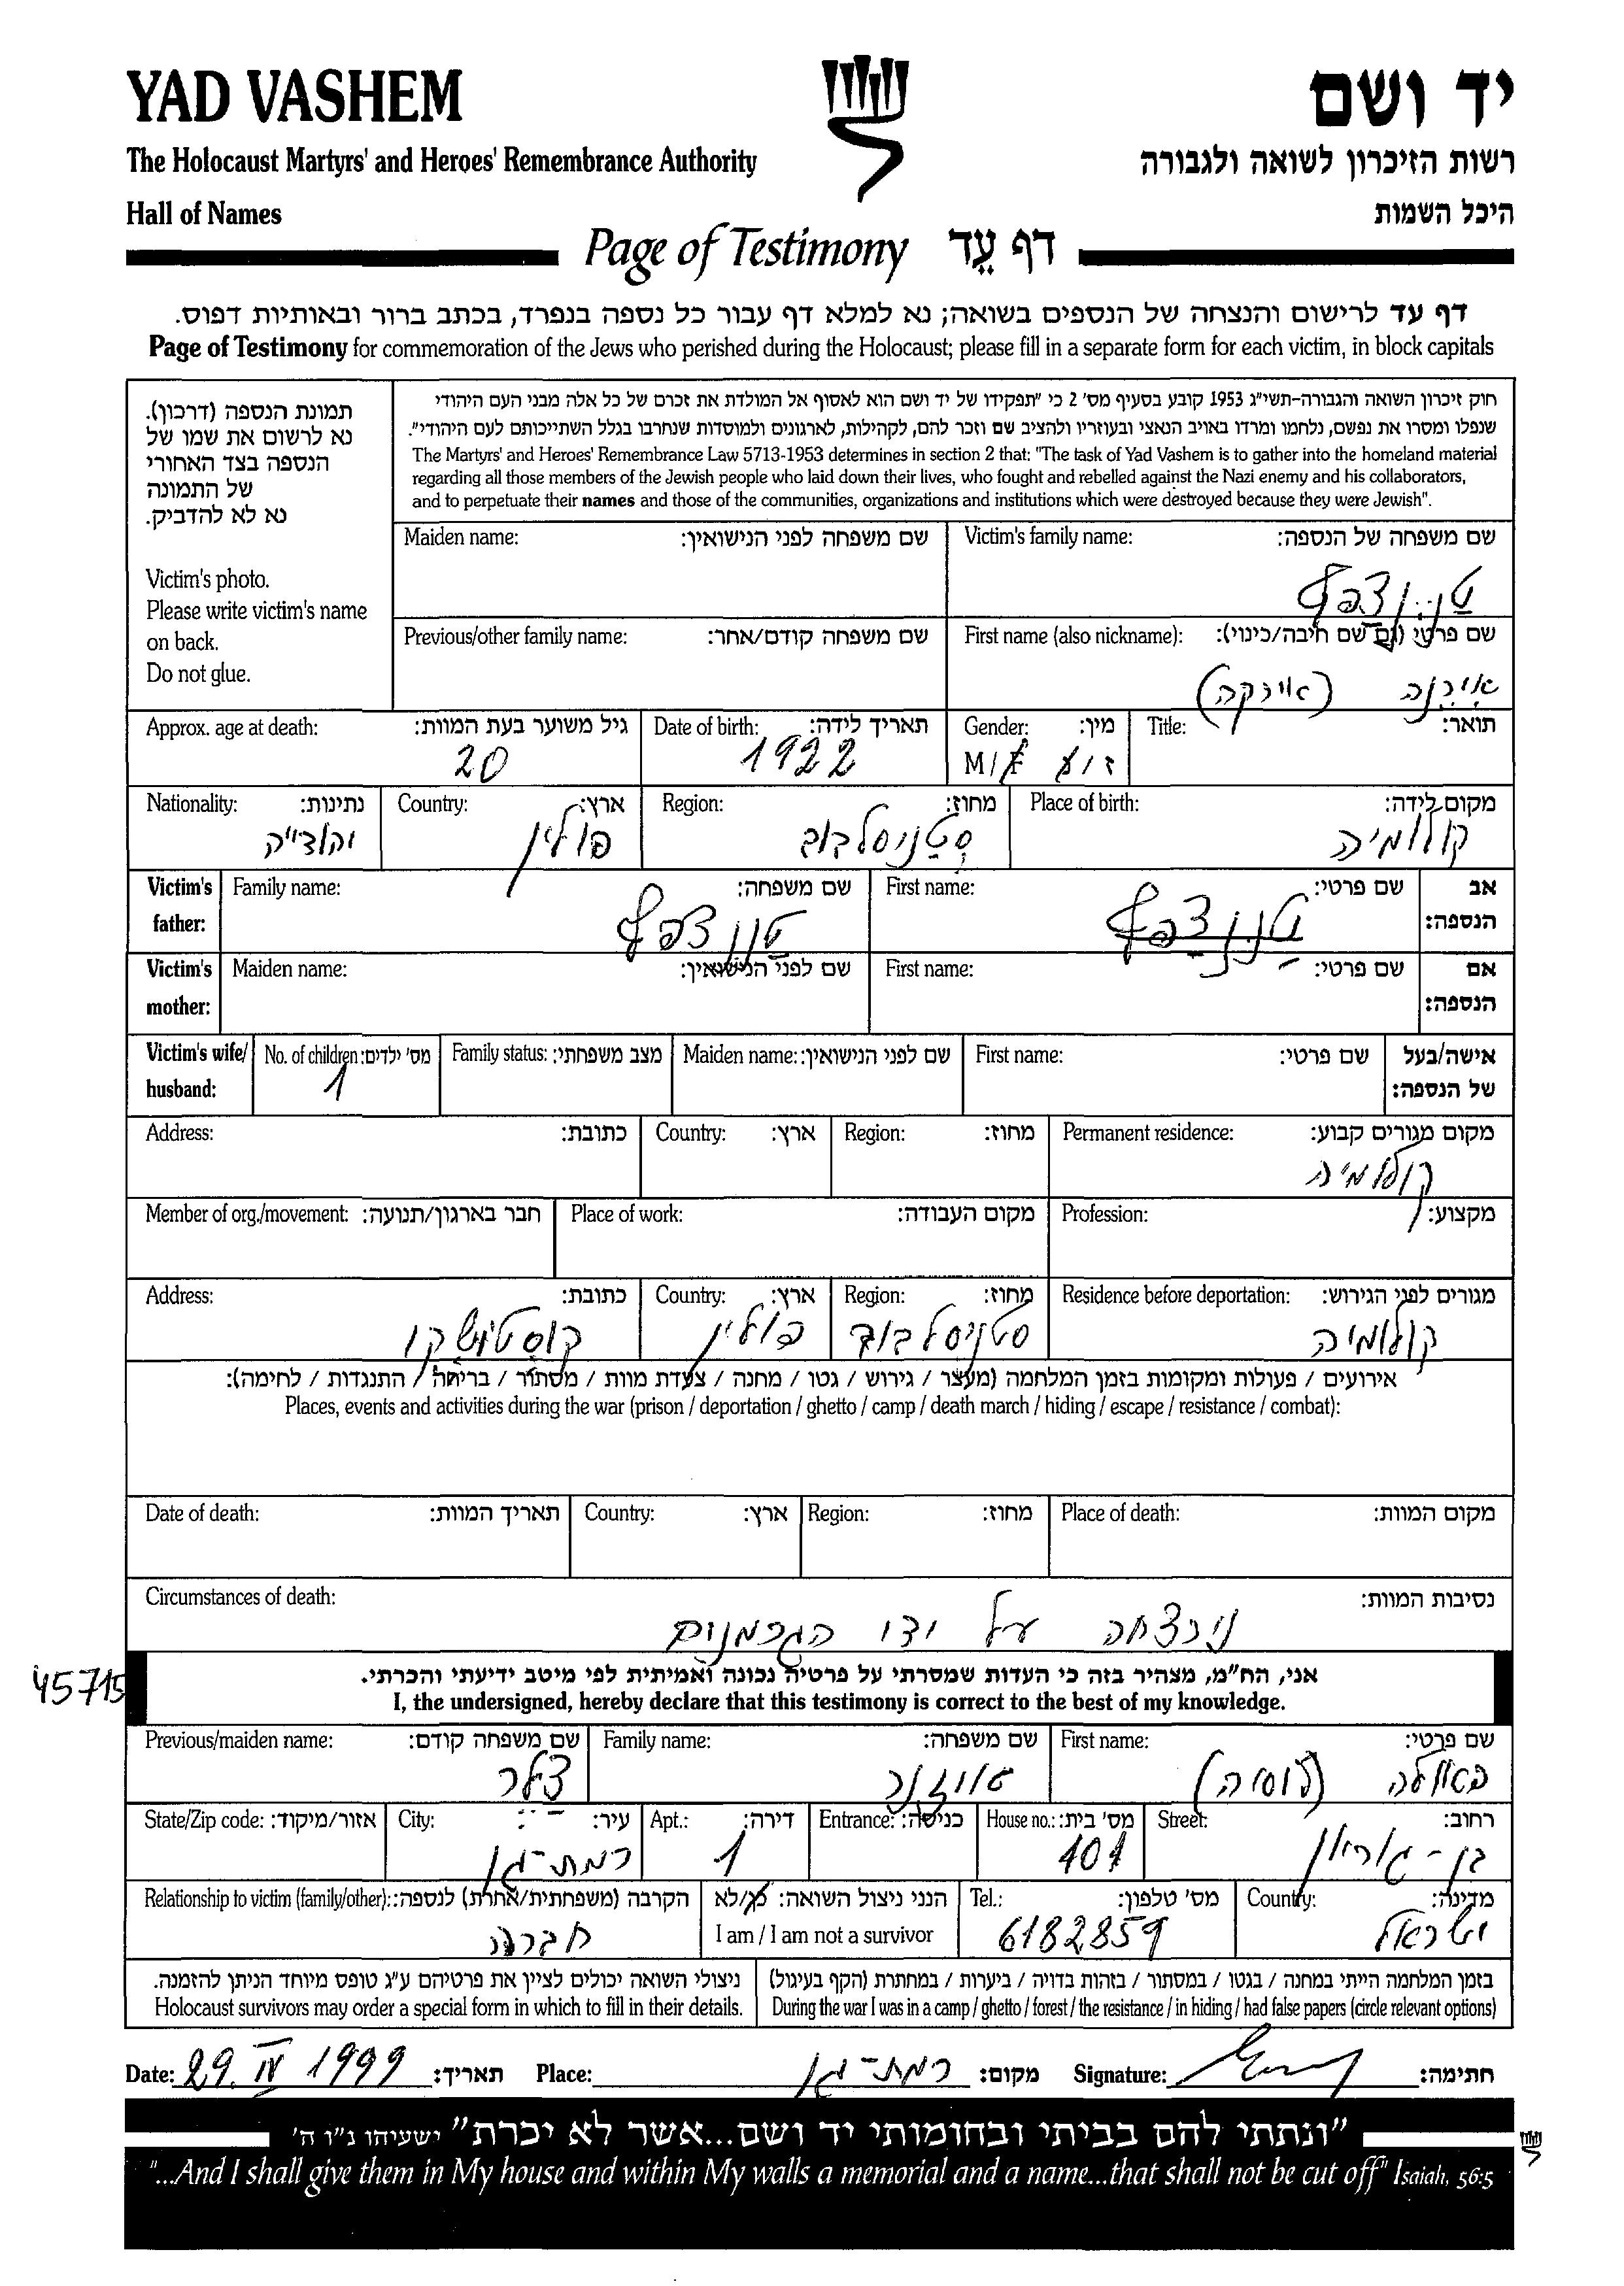 YAD VASHEM
יד ושם
The Holocaust Martyrs' and Heroes' Remembrance Authority
רשות הזיכרון לשואה ולגבורה
Hall of Names
היכל השמות
Page of Testimony דף עֵד
דף עד לרישום והנצחה של הנספים בשואה; נא למלא דף עבור כל נספה בנפרד, בכתב ברור ובאותיות דפוס.
Page of Testimony for commemoration of the Jews who perished during the Holocaust; please fill in a separate form for each victim, in block capitals
תמונת הנספה (דרכון).
נא לרשום את שמו של
הנספה בצד האחורי
של התמונה
נא לא להדביק.
Victim's photo.
Please write victim's name
on back.
Do not glue.
חוק זיכרון השואה והגבורה-תשי"ג 1953 קובע בסעיף מס' 2 כי "תפקידו של יד ושם הוא לאסוף אל המולדת את זכרם של כל אלה מבני העם היהודי
שנפלו ומסרו את נפשם, נלחמו ומרדו באויב הנאצי ובעוזריו ולהציב שם וזכר להם, לקהילות, לארגונים ולמוסדות שנחרבו בגלל השתייכותם לעם היהודי".
The Martyrs' and Heroes' Remembrance Law 5713-1953 determines in section 2 that: "The task of Yad Vashem is to gather into the homeland material
regarding all those members of the Jewish people who laid down their lives, who fought and rebelled against the Nazi enemy and his collaborators,
and to perpetuate their names and those of the communities, organizations and institutions which were destroyed because they were Jewish".
Victim's family name: שם משפחה של הנספה:
Maiden name: שם משפחה לפני הנישואין:
First name (also nickname): שם פרטי (גם שם חיבה/כינוי):
אירנה (אירקה)
Previous/other family name: שם משפחה קודם/אחר:
Title: תואר:
Gender: מין:
M/F ז/נ
Date of birth: תאריך לידה:
1922
Approx. age at death: גיל משוער בעת המוות:
20
Place of birth: מקום לידה:
קולומיה
Region: מחוז:
סטניסלבוב
Country: ארץ:
פולין
Nationality: נתינות:
יהודיה
Victim's father: אב הנספה:
First name: שם פרטי:
Family name: שם משפחה:
Victim's mother: אם הנספה:
First name: שם פרטי:
Maiden name: שם לפני הנישואין:
Victim's wife/husband: אישה/בעל של הנספה:
First name: שם פרטי:
Maiden name: שם לפני הנישואין:
Family status: מצב משפחתי:
No. of children: מס' ילדים:
1
Permanent residence: מקום מגורים קבוע:
קולומיה
Region: מחוז:
Country: ארץ:
Address: כתובת:
Profession: מקצוע:
Place of work: מקום העבודה:
Member of org./movement: חבר בארגון/תנועה:
Residence before deportation: מגורים לפני הגירוש:
קולומיה
Region: מחוז:
סטניסלבוב
Country: ארץ:
פולין
Address: כתובת:
קוסטושקו
אירועים / פעולות ומקומות בזמן המלחמה (מעצר / גירוש / גטו / מחנה / צעדת מוות / מסתור / בריחה / התנגדות / לחימה):
Places, events and activities during the war (prison / deportation / ghetto / camp / death march / hiding / escape / resistance / combat):
Place of death: מקום המוות:
Region: מחוז:
Country: ארץ:
Date of death: תאריך המוות:
Circumstances of death: נסיבות המוות:
נירצחה על ידי הגרמנים
45715
אני, הח"מ, מצהיר בזה כי העדות שמסרתי על פרטיה נכונה ואמיתית לפי מיטב ידיעתי והכרתי.
I, the undersigned, hereby declare that this testimony is correct to the best of my knowledge.
First name: שם פרטי:
פאולה (לוסיה)
Family name: שם משפחה:
Previous/maiden name: שם משפחה קודם:
צלר
Street: רחוב:
בן-גוריון
House no.: מס' בית:
101
Entrance: כניסה:
Apt.: דירה:
1
City: עיר:
רמת-גן
State/Zip code: אזור/מיקוד:
Country: מדינה:
ישראל
Tel.: מס' טלפון:
6182859
הנני ניצול השואה: כן/לא
I am / I am not a survivor
Relationship to victim (family/other): הקרבה (משפחתית/אחרת) לנספה:
חברה
בזמן המלחמה הייתי במחנה / בגטו / במסתור / בזהות בדויה / ביערות / במחתרת (הקף בעיגול)
During the war I was in a camp / ghetto / forest / the resistance / in hiding / had false papers (circle relevant options)
ניצולי השואה יכולים לציין את פרטיהם ע"ג טופס מיוחד הניתן להזמנה.
Holocaust survivors may order a special form in which to fill in their details.
Date: 29. IV 1999 תאריך: Place: רמת-גן מקום: Signature: חתימה:
"ונתתי להם בביתי ובחומותי יד ושם...אשר לא יכרת" ישעיהו נ"ו ה'
"...And I shall give them in My house and within My walls a memorial and a name...that shall not be cut off" Isaiah, 56:5